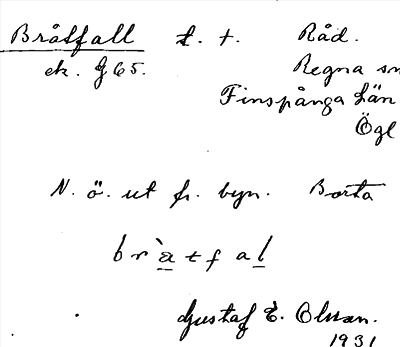 Bråtfall t. t. Råd.
ek. G 65. Regna sn
Finspånga län
Ögl
N. ö. ut fr. byn. Borta
br̀a̲tfal̲
Gustaf E. Olsson.
1931